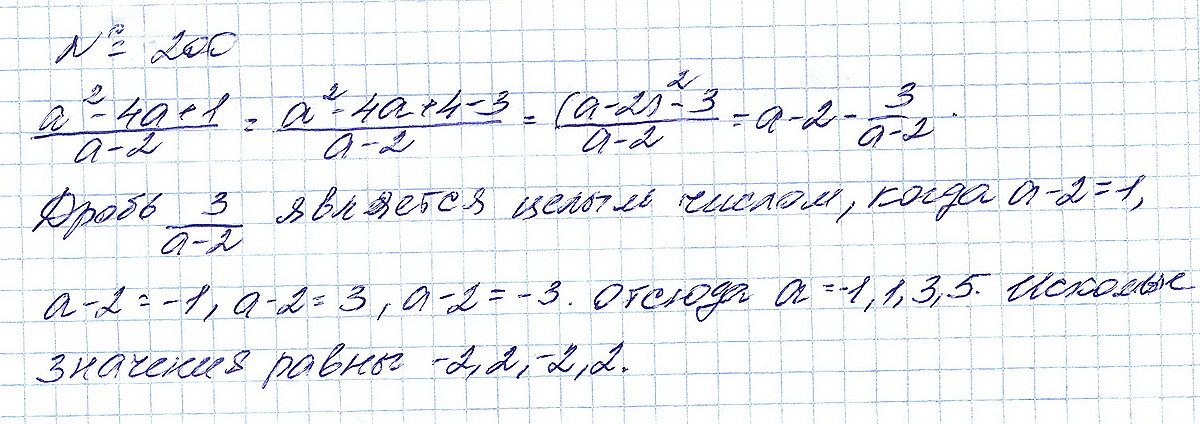 № 200
(a² - 4a + 1)/(a - 2) = (a² - 4a + 4 - 3)/(a - 2) = ((a - 2)² - 3)/(a - 2) = a - 2 - 3/(a - 2).
Дробь 3/(a - 2) является целым числом, когда a - 2 = 1,
a - 2 = -1, a - 2 = 3, a - 2 = -3. Отсюда a = -1, 1, 3, 5. Искомые
значения равны -2, 2, -2, 2.